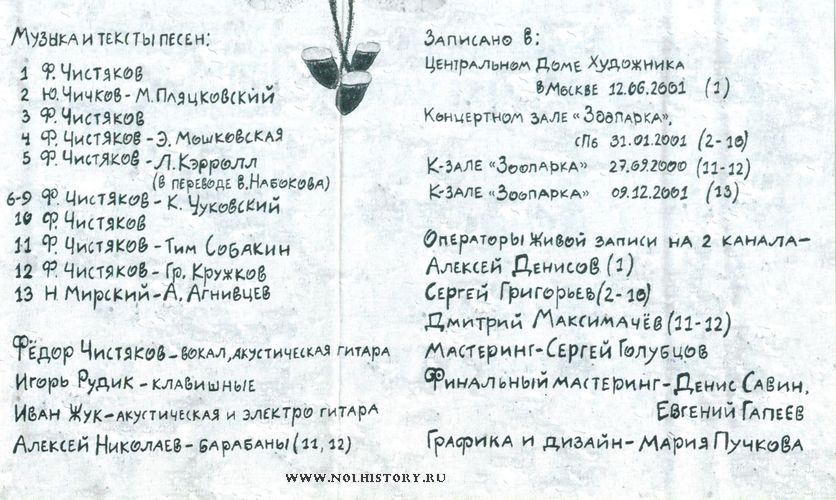 Музыка и тексты песен:
1 Ф. Чистяков
2 Ю. Чичков - М. Пляцковский
3 Ф. Чистяков
4 Ф. Чистяков - Э. Мошковская
5 Ф. Чистяков - Л. Кэрролл
(в переводе В. Набокова)
6-9 Ф. Чистяков - К. Чуковский
10 Ф. Чистяков
11 Ф. Чистяков - Тим Собакин
12 Ф. Чистяков - Гр. Кружков
13 Н Мирский - А. Агнивцев
Фёдор Чистяков - вокал, акустическая гитара
Игорь Рудик - клавишные
Иван Жук - акустическая и электро гитара
Алексей Николаев - барабаны (11, 12)
Записано в:
Центральном Доме Художника
в Москве 12.06.2001 (1)
Концертном зале «Зоопарка»,
спб 31.01.2001 (2-10)
К-зале «Зоопарка» 27.09.2000 (11-12)
К-зале «Зоопарка» 09.12.2001 (13)
Операторы живой записи на 2 канала -
Алексей Денисов (1)
Сергей Григорьев (2-10)
Дмитрий Максимачёв (11-12)
Мастеринг - Сергей Голубцов
Финальный мастеринг - Денис Савин,
Евгений Гапеев
Графика и дизайн - Мария Пучкова
WWW.NOLHISTORY.RU